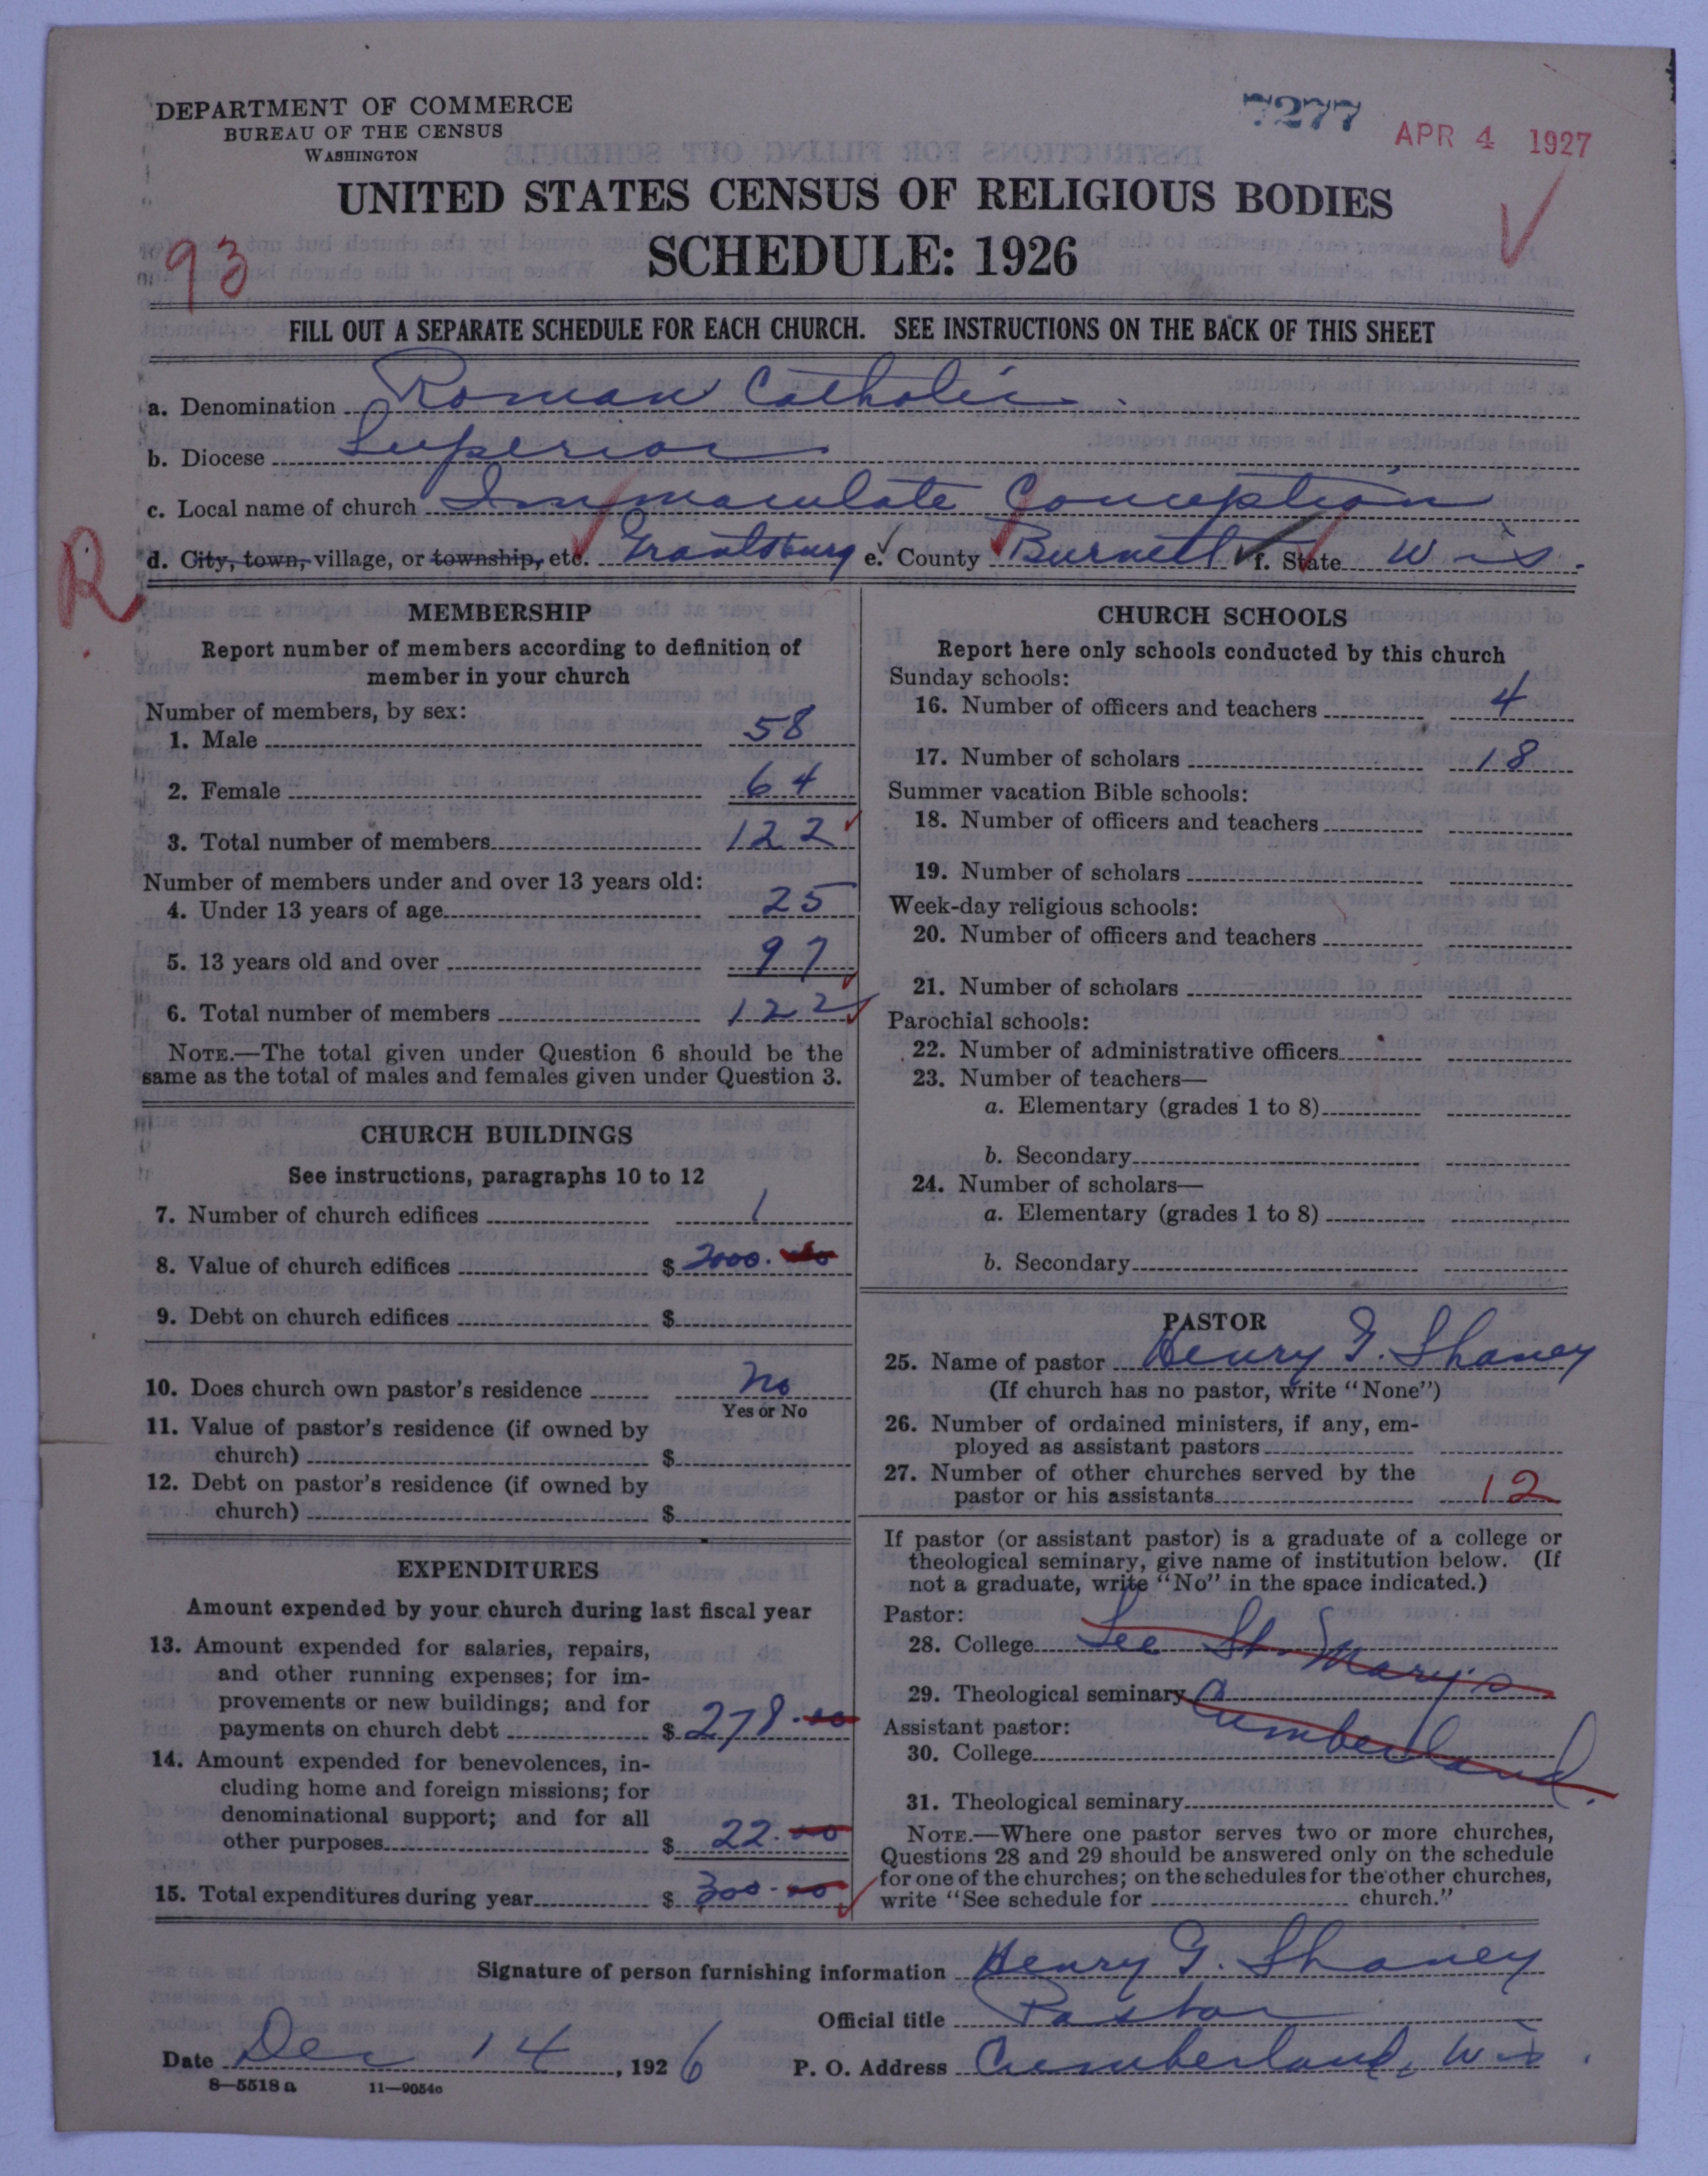 DEPARTMENT OF COMMERCE
BUREAU OF THE CENSUS
WASHINGTON
7277
APR 4 1927
UNITED STATES CENSUS OF RELIGIOUS BODIES
SCHEDULE: 1926
93
FILL OUT A SEPARATE SCHEDULE FOR EACH CHURCH. SEE INSTRUCTIONS ON THE BACK OF THIS SHEET
a. Denomination Roman Catholic
b. Diocese Superior
c. Local name of church Immaculate Conception
R d. City, town, village, or township, etc. Grantsburg e. County Burnett f. State Wis.
MEMBERSHIP
Report number of members according to definition of
member in your church
Number of members, by sex:
1. Male 58
2. Female 64
3. Total number of members 122
Number of members under and over 13 years old:
4. Under 13 years of age 25
5. 13 years old and over 97
6. Total number of members 122
NOTE.—The total given under Question 6 should be the
same as the total of males and females given under Question 3.
CHURCH BUILDINGS
See instructions, paragraphs 10 to 12
7. Number of church edifices 1
8. Value of church edifices $ 2000.00
9. Debt on church edifices $
10. Does church own pastor's residence No
Yes or No
11. Value of pastor's residence (if owned by
church) $
12. Debt on pastor's residence (if owned by
church) $
EXPENDITURES
Amount expended by your church during last fiscal year
13. Amount expended for salaries, repairs,
and other running expenses; for im-
provements or new buildings; and for
payments on church debt $ 278.00
14. Amount expended for benevolences, in-
cluding home and foreign missions; for
denominational support; and for all
other purposes $ 22.00
15. Total expenditures during year $ 300.00
CHURCH SCHOOLS
Report here only schools conducted by this church
Sunday schools:
16. Number of officers and teachers 4
17. Number of scholars 18
Summer vacation Bible schools:
18. Number of officers and teachers
19. Number of scholars
Week-day religious schools:
20. Number of officers and teachers
21. Number of scholars
Parochial schools:
22. Number of administrative officers
23. Number of teachers—
a. Elementary (grades 1 to 8)
b. Secondary
24. Number of scholars—
a. Elementary (grades 1 to 8)
b. Secondary
PASTOR
25. Name of pastor Henry G. Shaney
(If church has no pastor, write "None")
26. Number of ordained ministers, if any, em-
ployed as assistant pastors
27. Number of other churches served by the
pastor or his assistants 12
If pastor (or assistant pastor) is a graduate of a college or
theological seminary, give name of institution below. (If
not a graduate, write "No" in the space indicated.)
Pastor:
28. College See St. Mary's
29. Theological seminary Cumberland.
Assistant pastor:
30. College
31. Theological seminary
NOTE.—Where one pastor serves two or more churches,
Questions 28 and 29 should be answered only on the schedule
for one of the churches; on the schedules for the other churches,
write "See schedule for church."
Signature of person furnishing information Henry G. Shaney
Official title Pastor
Date Dec 14, 1926 P. O. Address Cumberland, Wis.
8—5518 a 11—9054c